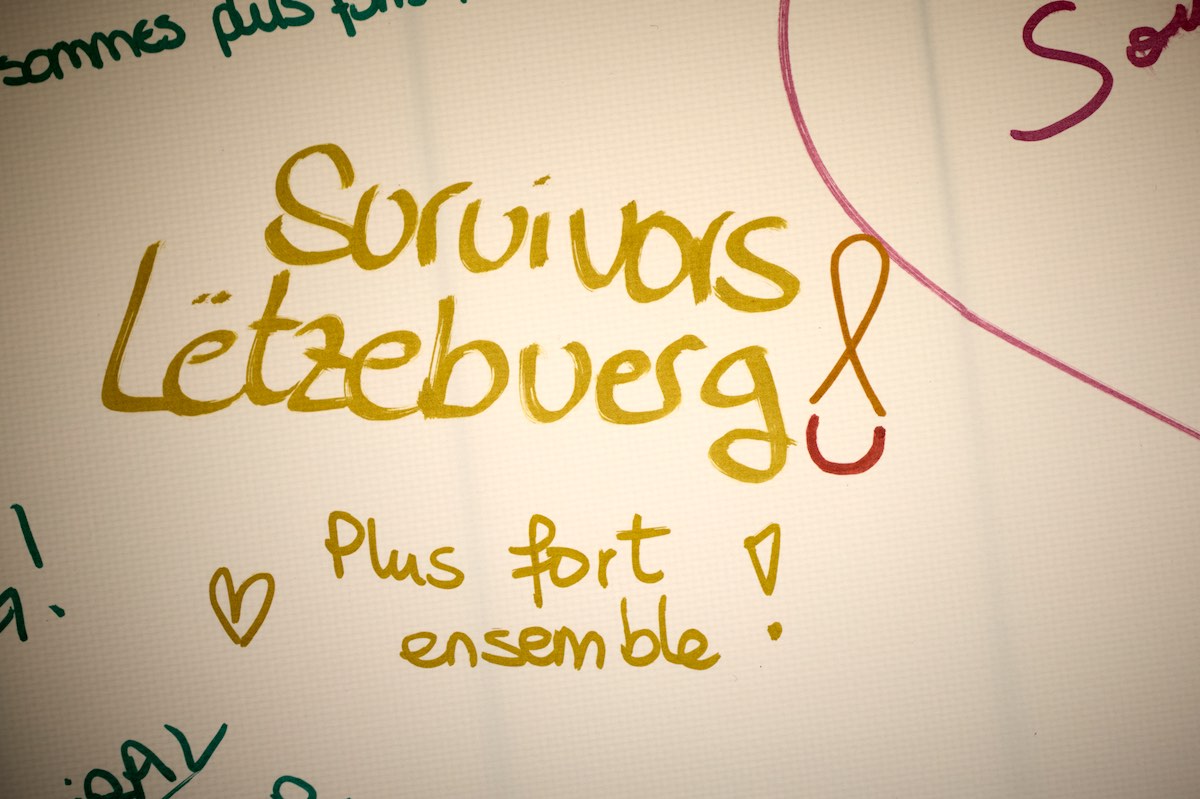 sommes plus
Survivors
Lëtzebuerg
Plus fort !
ensemble